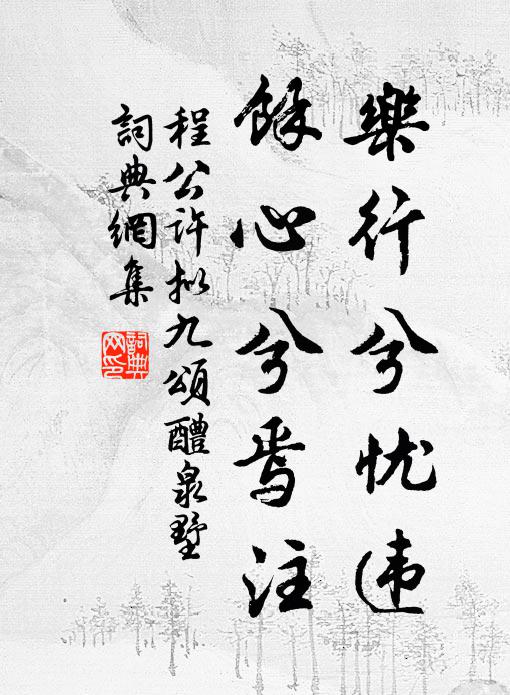 樂行兮忧违
餘心兮焉注
程公许拟九頌醴泉墅
詞典網集
詞典網印